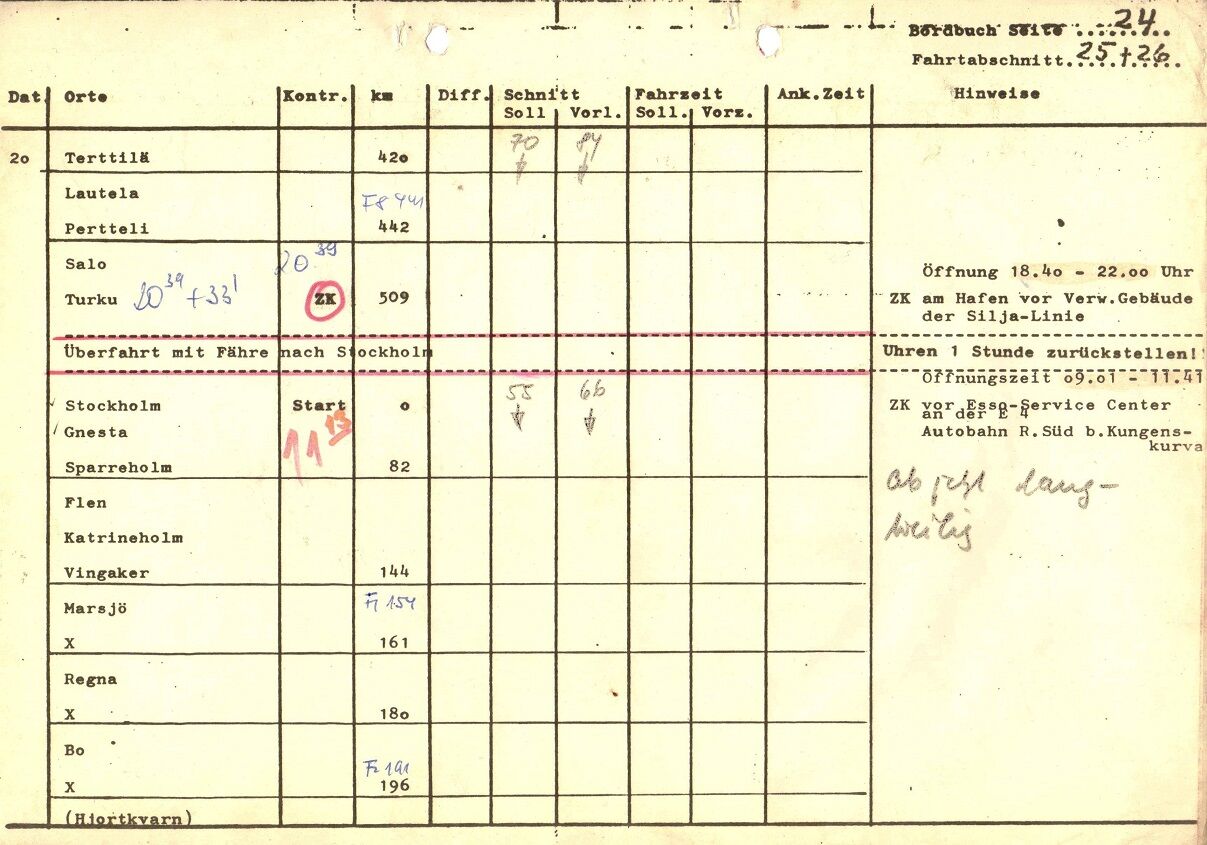 Bordbuch Seite ...24..
Fahrtabschnitt.25+26.
Dat. Orte Kontr. km Diff. Schnitt Fahrzeit Ank.Zeit Hinweise
Soll Vorl. Soll. Vorz.
70 84
2o Terttilä 42o
Lautela
F8 441
Pertteli 442
Salo 20 39
Öffnung 18.4o - 22.oo Uhr
Turku 20 39 + 33' ZK 509 ZK am Hafen vor Verw.Gebäude
der Silja-Linie
Überfahrt mit Fähre nach Stockholm Uhren 1 Stunde zurückstellen!!
Öffnungszeit o9.o1 - 11.41
55 66
Stockholm Start o ZK vor Esso-Service Center
an der E 4
Gnesta 11 13 Autobahn R.Süd b.Kungens-
kurva
Sparreholm 82
ab jetzt lang-
Flen
weilig
Katrineholm
Vingaker 144
Marsjö F1 154
X 161
Regna
X 18o
Bo
F2 191
X 196
(Hjortkvarn)